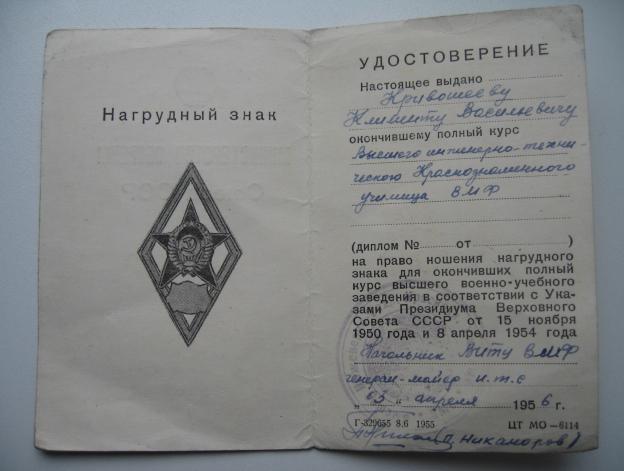 Нагрудный знак
УДОСТОВЕРЕНИЕ
Настоящее выдано
Кривошееву
Клименту Васильевичу
окончившему полный курс
Высшего инженерно-техни-
ческого Краснознаменного
училища ВМФ
(диплом № от )
на право ношения нагрудного
знака для окончивших полный
курс высшего военно-учебного
заведения в соответствии с Ука-
зами Президиума Верховного
Совета СССР от 15 ноября
1950 года и 8 апреля 1954 года
Начальник ВИТУ ВМФ
генерал-майор и.т.с
„03„ апреля 1956 г.
Г-329655 8.6 1955 ЦТ МО—6114
Никаноров)